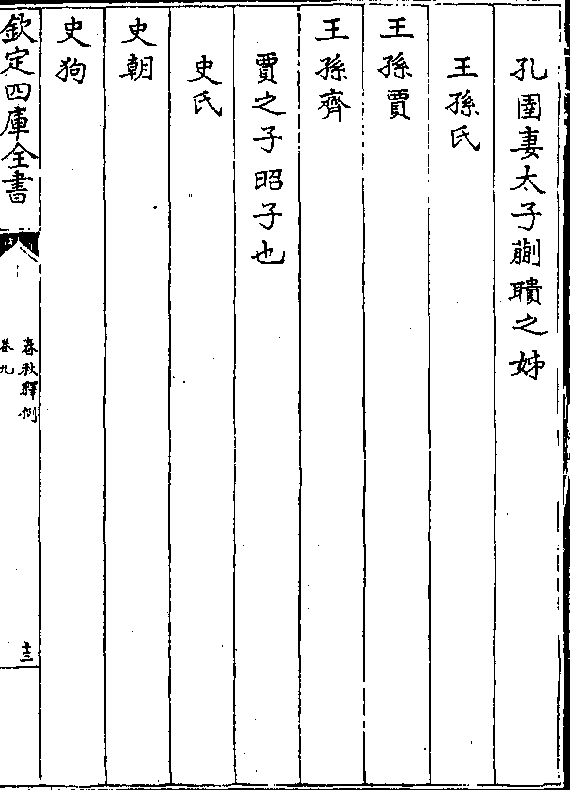 孔圉妻太子蒯聵之姊
王孫氏
王孫賈
王孫齊
賈之子昭子也
史氏
史朝
史狗
欽定四庫全書
春秋釋例
卷九
十三